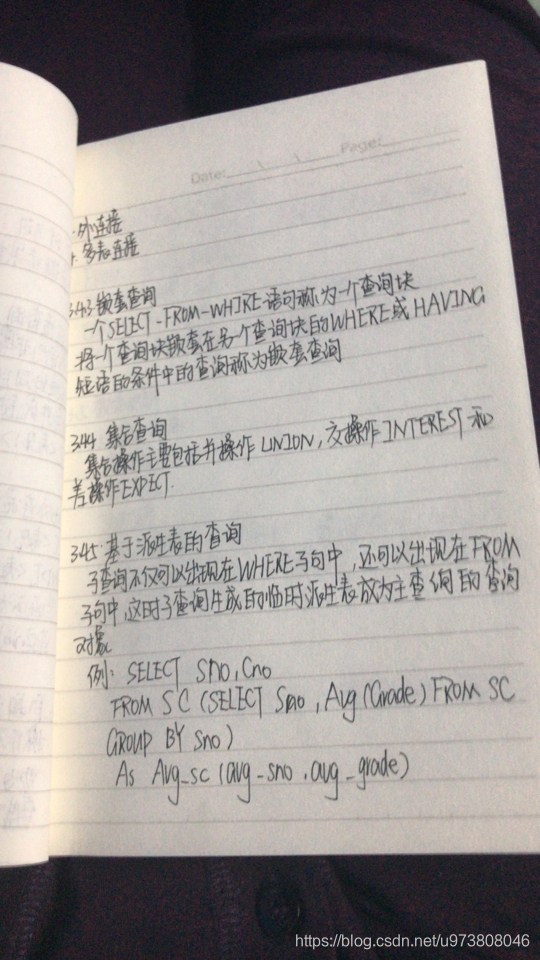 Date: \ \ Page:
·外连接
·多表连接
3.4.3 嵌套查询
一个SELECT-FROM-WHIRE语句称为一个查询块
将一个查询块嵌套在另一个查询块的WHERE或HAVING
短语的条件中的查询称为嵌套查询
3.4.4 集合查询
集合操作主要包括并操作UNION,交操作INTEREST和
差操作EXPECT.
3.4.5 基于派生表的查询
子查询不仅可以出现在WHERE子句中,还可以出现在FROM
子句中,这时子查询生成的临时派生表成为主查询的查询
对象
例: SELECT Sno,Cno
FROM SC (SELECT Sno, Avg(Grade) FROM SC
GROUP BY Sno)
As Avg_sc (avg-sno,avg_grade)
https://blog.csdn.net/u973808046